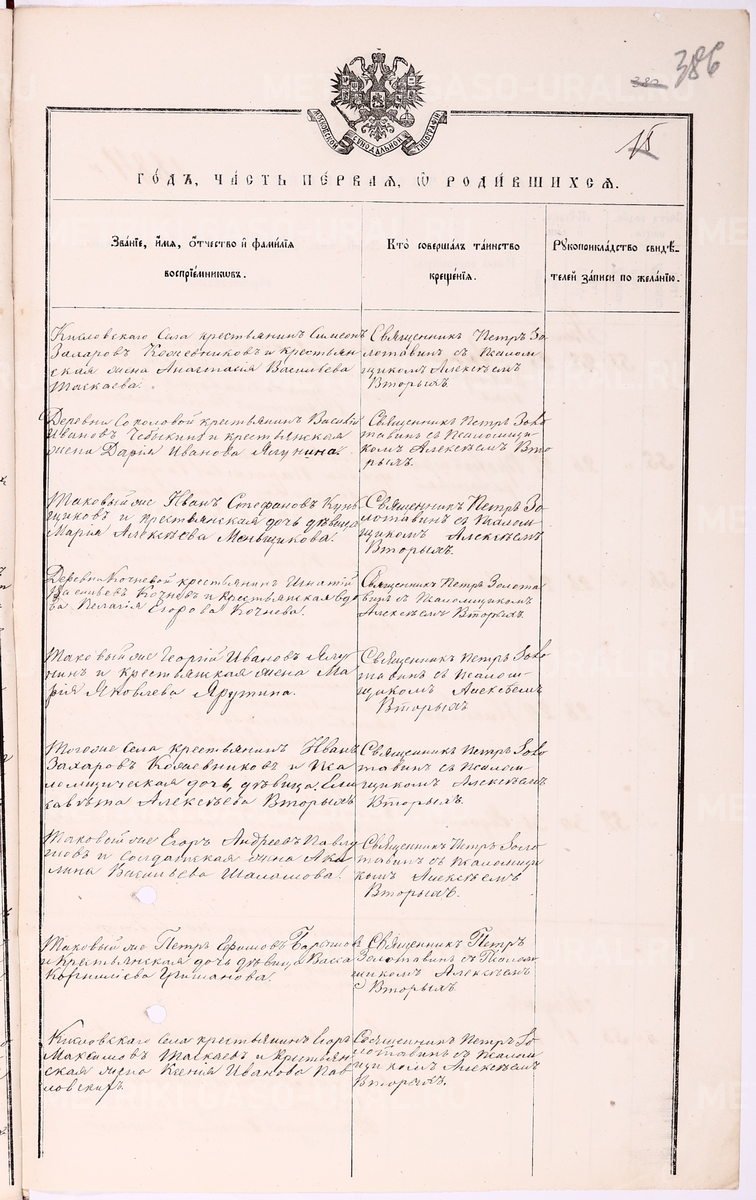 386
382
15
МОСКОВСКОЙ СѴНОДАЛЬНОЙ ТИПОГРАФІИ
ГО́ДЪ, ЧА́СТЬ ПЕ́РВАЯ, Ѡ҆ РОДИ́ВШИХСЯ.
Зва́нїе, и҆́мя, ѻ҆́тчество и҆ фами́лїя
воспрїе́мникѡвъ.
Кто̀ соверша́лъ та́инство
креще́нїя.
Рꙋкоприкла́дство свидѣ́-
телей за́писи по жела́нїю.
Кисловскаго Села крестьянинъ Симеонъ
Захаровъ Кожевниковъ и крестьян
ская жена Анастасія Васильева
Таскаева.
Священникъ Петръ Зо
лотавинъ съ Псалом
щикомъ Алексѣемъ
Вторыхъ.
Деревни Соколовой крестьянинъ Василій
Ивановъ Чебыкинъ и крестьянская
жена Дарія Иванова Ялунина.
Священникъ Петръ Золо
тавинъ съ Псаломщи
комъ Алексѣемъ Вто
рыхъ.
Таковый же Иванъ Стефановъ
щиковъ и крестьянская дочь дѣвица
Марія Алексѣева Меньщикова.
Священникъ Петръ Зо
лотавинъ съ Псалом
щикомъ Алексѣемъ
Вторыхъ.
Деревни Кочневой крестьянинъ Игнатій
Васильевъ Кочневъ и крестьянская вдо
ва Пелагія Егорова Кочнева.
Священникъ Петръ Золота
винъ съ Псаломщикомъ
Алексѣемъ Вторыхъ.
Таковый же Георгій Ивановъ Ялу
нинъ и крестьянская жена Ма
рія Яковлева Ярутина.
Священникъ Петръ Золо
тавинъ съ Псалом
щикомъ Алексѣемъ
Вторыхъ
Тогоже Села крестьянинъ Иванъ
Захаровъ Кожевниковъ и Пса
ломщическая дочь, дѣвица Ели
савѣта Алексѣева Вторыхъ
Священникъ Петръ Золо
тавинъ съ Псалом
щикомъ Алексѣемъ
Вторыхъ.
Таковый же Егоръ Андреевъ
и солдатская жена Аку
лина Васильева Шаламова.
Священникъ Петръ Золо
тавинъ съ Псаломщи
комъ Алексѣемъ
Вторыхъ.
Таковый же Петръ Ефимовъ
и Крестьянская дочь дѣвица Васса
Корнилиева Гришанова.
Священникъ Петръ
Золотавинъ съ Псалом
щикомъ Алексѣемъ
Вторыхъ.
Кисловскаго села крестьянинъ Егоръ
Максимовъ Таскаевъ и крестьян
ская жена Ксенія Иванова Пав
ловскихъ.
Священникъ Петръ Зо
лотавинъ съ Псалом
щикомъ Алексѣемъ
Вторыхъ.